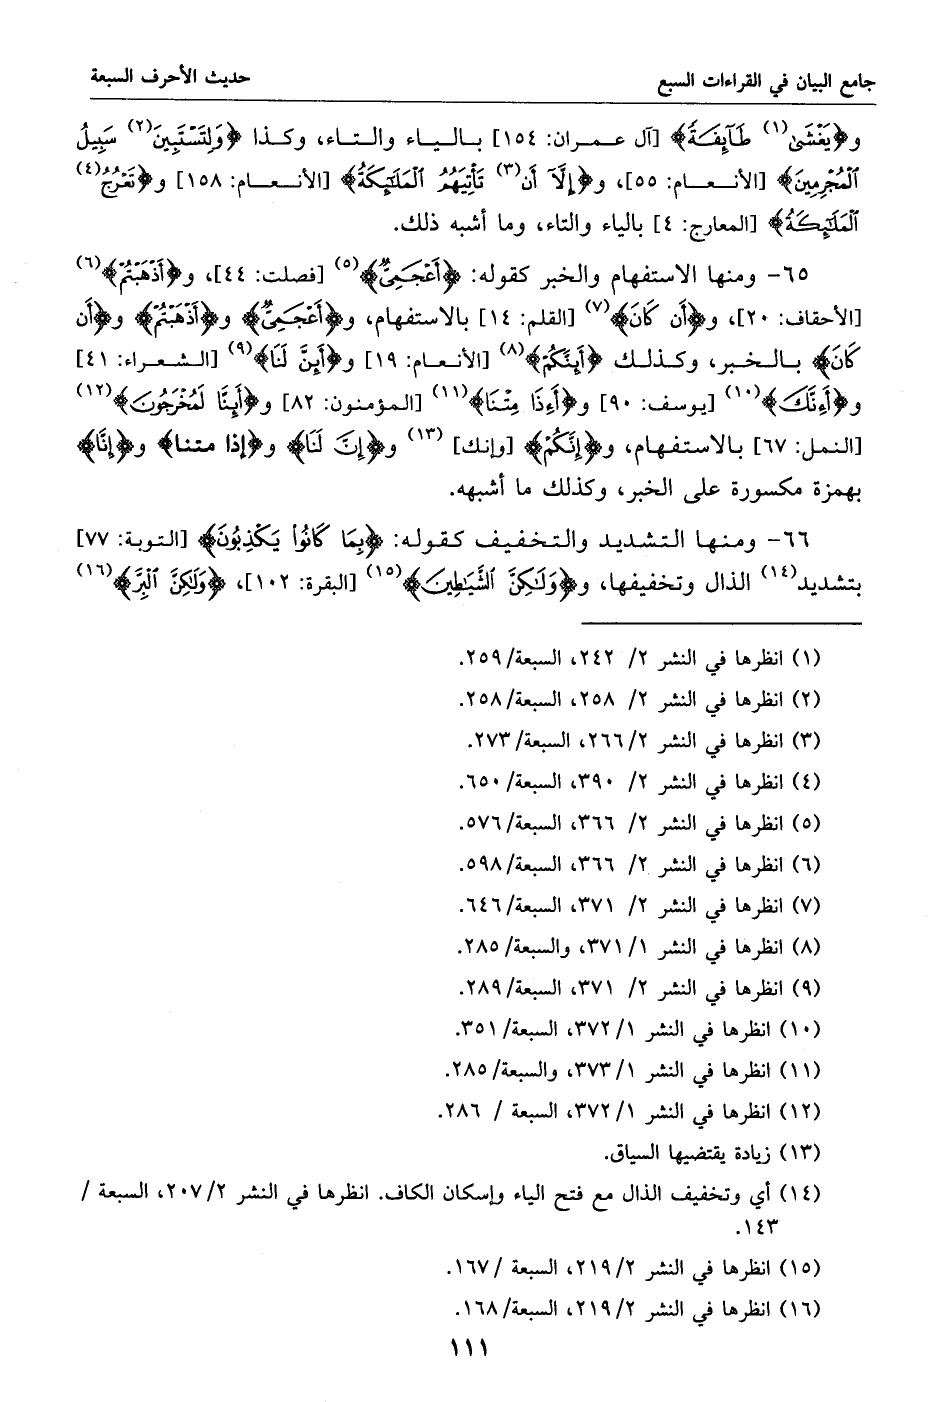 جامع البيان في القراءات السبع
حديث الأحرف السبعة
و﴿يَغْشَىٰ(١) طَآئِفَةً﴾ [آل عمران: ١٥٤] بالياء والتاء، وكذا ﴿وَلِتَسْتَبِينَ(٢) سَبِيلُ
ٱلْمُجْرِمِينَ﴾ [الأنعام: ٥٥]، و﴿إِلَّآ أَن(٣) تَأْتِيَهُمُ ٱلْمَلَٰٓئِكَةُ﴾ [الأنعام: ١٥٨] و﴿تَعْرُجُ(٤)
ٱلْمَلَٰٓئِكَةُ﴾ [المعارج: ٤] بالياء والتاء، وما أشبه ذلك.
٦٥- ومنها الاستفهام والخبر كقوله: ﴿أَعْجَمِيٌّ﴾(٥) [فصلت: ٤٤]، و﴿أَذْهَبْتُمْ﴾(٦)
[الأحقاف: ٢٠]، و﴿أَن كَانَ﴾(٧) [القلم: ١٤] بالاستفهام، و﴿أَعْجَمِيٌّ﴾ و﴿أَذْهَبْتُمْ﴾ و﴿أَن
كَانَ﴾ بالخبر، وكذلك ﴿أَئِنَّكُمْ﴾(٨) [الأنعام: ١٩] و﴿أَئِنَّ لَنَا﴾(٩) [الشعراء: ٤١]
و﴿أَءِنَّكَ﴾(١٠) [يوسف: ٩٠] و﴿أَءِذَا مِتْنَا﴾(١١) [المؤمنون: ٨٢] و﴿أَئِنَّا لَمُخْرَجُونَ﴾(١٢)
[النمل: ٦٧] بالاستفهام، و﴿إِنَّكُمْ﴾ [وإنك](١٣) و﴿إِنَّ لَنَا﴾ و﴿إذا متنا﴾ و﴿إِنَّا﴾
بهمزة مكسورة على الخبر، وكذلك ما أشبهه.
٦٦- ومنها التشديد والتخفيف كقوله: ﴿بِمَا كَانُواْ يَكْذِبُونَ﴾ [التوبة: ٧٧]
بتشديد(١٤) الذال وتخفيفها، و﴿وَلَٰكِنَّ ٱلشَّيَٰطِينَ﴾(١٥) [البقرة: ١٠٢]، ﴿وَلَٰكِنَّ ٱلْبِرَّ﴾(١٦)
(١) انظرها في النشر ٢/ ٢٤٢، السبعة/٢٥٩.
(٢) انظرها في النشر ٢/ ٢٥٨، السبعة/٢٥٨.
(٣) انظرها في النشر ٢/٢٦٦، السبعة/٢٧٣.
(٤) انظرها في النشر ٢/ ٣٩٠، السبعة/٦٥٠.
(٥) انظرها في النشر ٢/ ٣٦٦، السبعة/٥٧٦.
(٦) انظرها في النشر ٢/ ٣٦٦، السبعة/٥٩٨.
(٧) انظرها في النشر ٢/ ٣٧١، السبعة/٦٤٦.
(٨) انظرها في النشر ١/٣٧١، والسبعة/٢٨٥.
(٩) انظرها في النشر ٢/ ٣٧١، السبعة/٢٨٩.
(١٠) انظرها في النشر ١/٣٧٢، السبعة/٣٥١.
(١١) انظرها في النشر ١/٣٧٣، والسبعة/٢٨٥.
(١٢) انظرها في النشر ١/٣٧٢، السبعة / ٢٨٦.
(١٣) زيادة يقتضيها السياق.
(١٤) أي وتخفيف الذال مع فتح الياء وإسكان الكاف. انظرها في النشر ٢/٢٠٧، السبعة /
١٤٣.
(١٥) انظرها في النشر ٢/٢١٩، السبعة /١٦٧.
(١٦) انظرها في النشر ٢/٢١٩، السبعة/١٦٨.
١١١